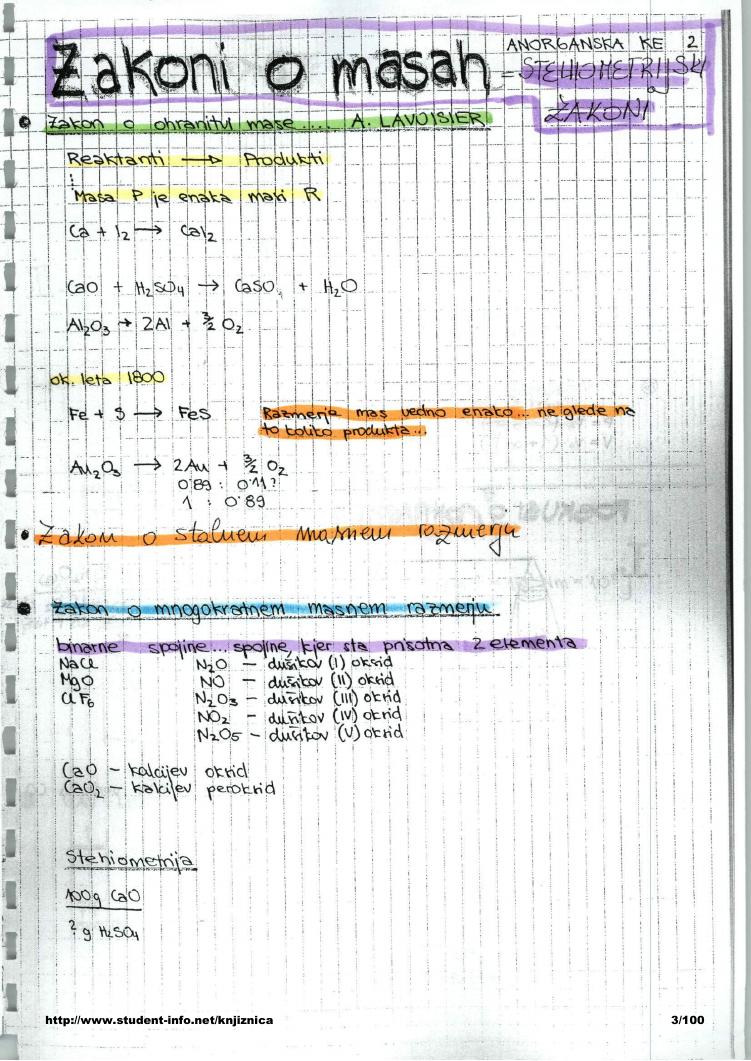 Zakoni o masah
ANORGANSKA KE 2
= STEHIOMETRIJSKI
ZAKONI
• Zakon o ohranitvi mase .... A. LAVOISIER
Reaktanti → Produkti
Masa P je enaka masi R
Ca + I₂ → CaI₂
CaO + H₂SO₄ → CaSO₄ + H₂O
Al₂O₃ → 2Al + 3/2 O₂
ok. leta 1800
Fe + S → FeS
Razmerje mas vedno enako... ne glede na
to koliko produkta...
Au₂O₃ → 2Au + 3/2 O₂
0'89 : 0'11?
1 : 0'89
• Zakon o stalnem masnem razmerju
• Zakon o mnogokratnem masnem razmerju
binarne spojine... spojine, kjer sta prisotna 2 elementa
NaCl
MgO
UF₆
N₂O – dušikov (I) oksid
NO – dušikov (II) oksid
N₂O₃ – dušikov (III) oksid
NO₂ – dušikov (IV) oksid
N₂O₅ – dušikov (V) oksid
CaO – kalcijev oksid
CaO₂ – kalcijev peroksid
Stehiometrija
100g CaO
? g H₂SO₄
http://www.student-info.net/knjiznica
3/100